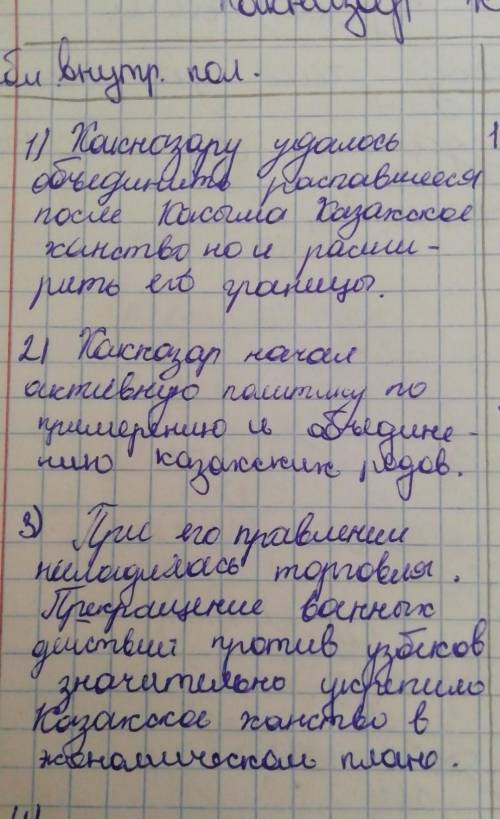 бл внутр. пол.
1) Хакназару удалось
объединить распавшееся
после Касыма Казахское
ханство но и расши-
рить его границы.
2) Хакназар начал
активную политику по
примерению и объедине-
нию казахских родов.
3) При его правлении
наладилась торговля.
Прекращение военных
действий против узбеков
значительно укрепило
Казахское ханство в
экономическом плане.